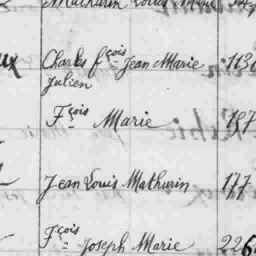 Mathurin Louis Marie
Charles fçois Jean Marie 113
Julien
Fçois Marie 157
Jean Louis Mathurin 177
Fçois Joseph Marie 226